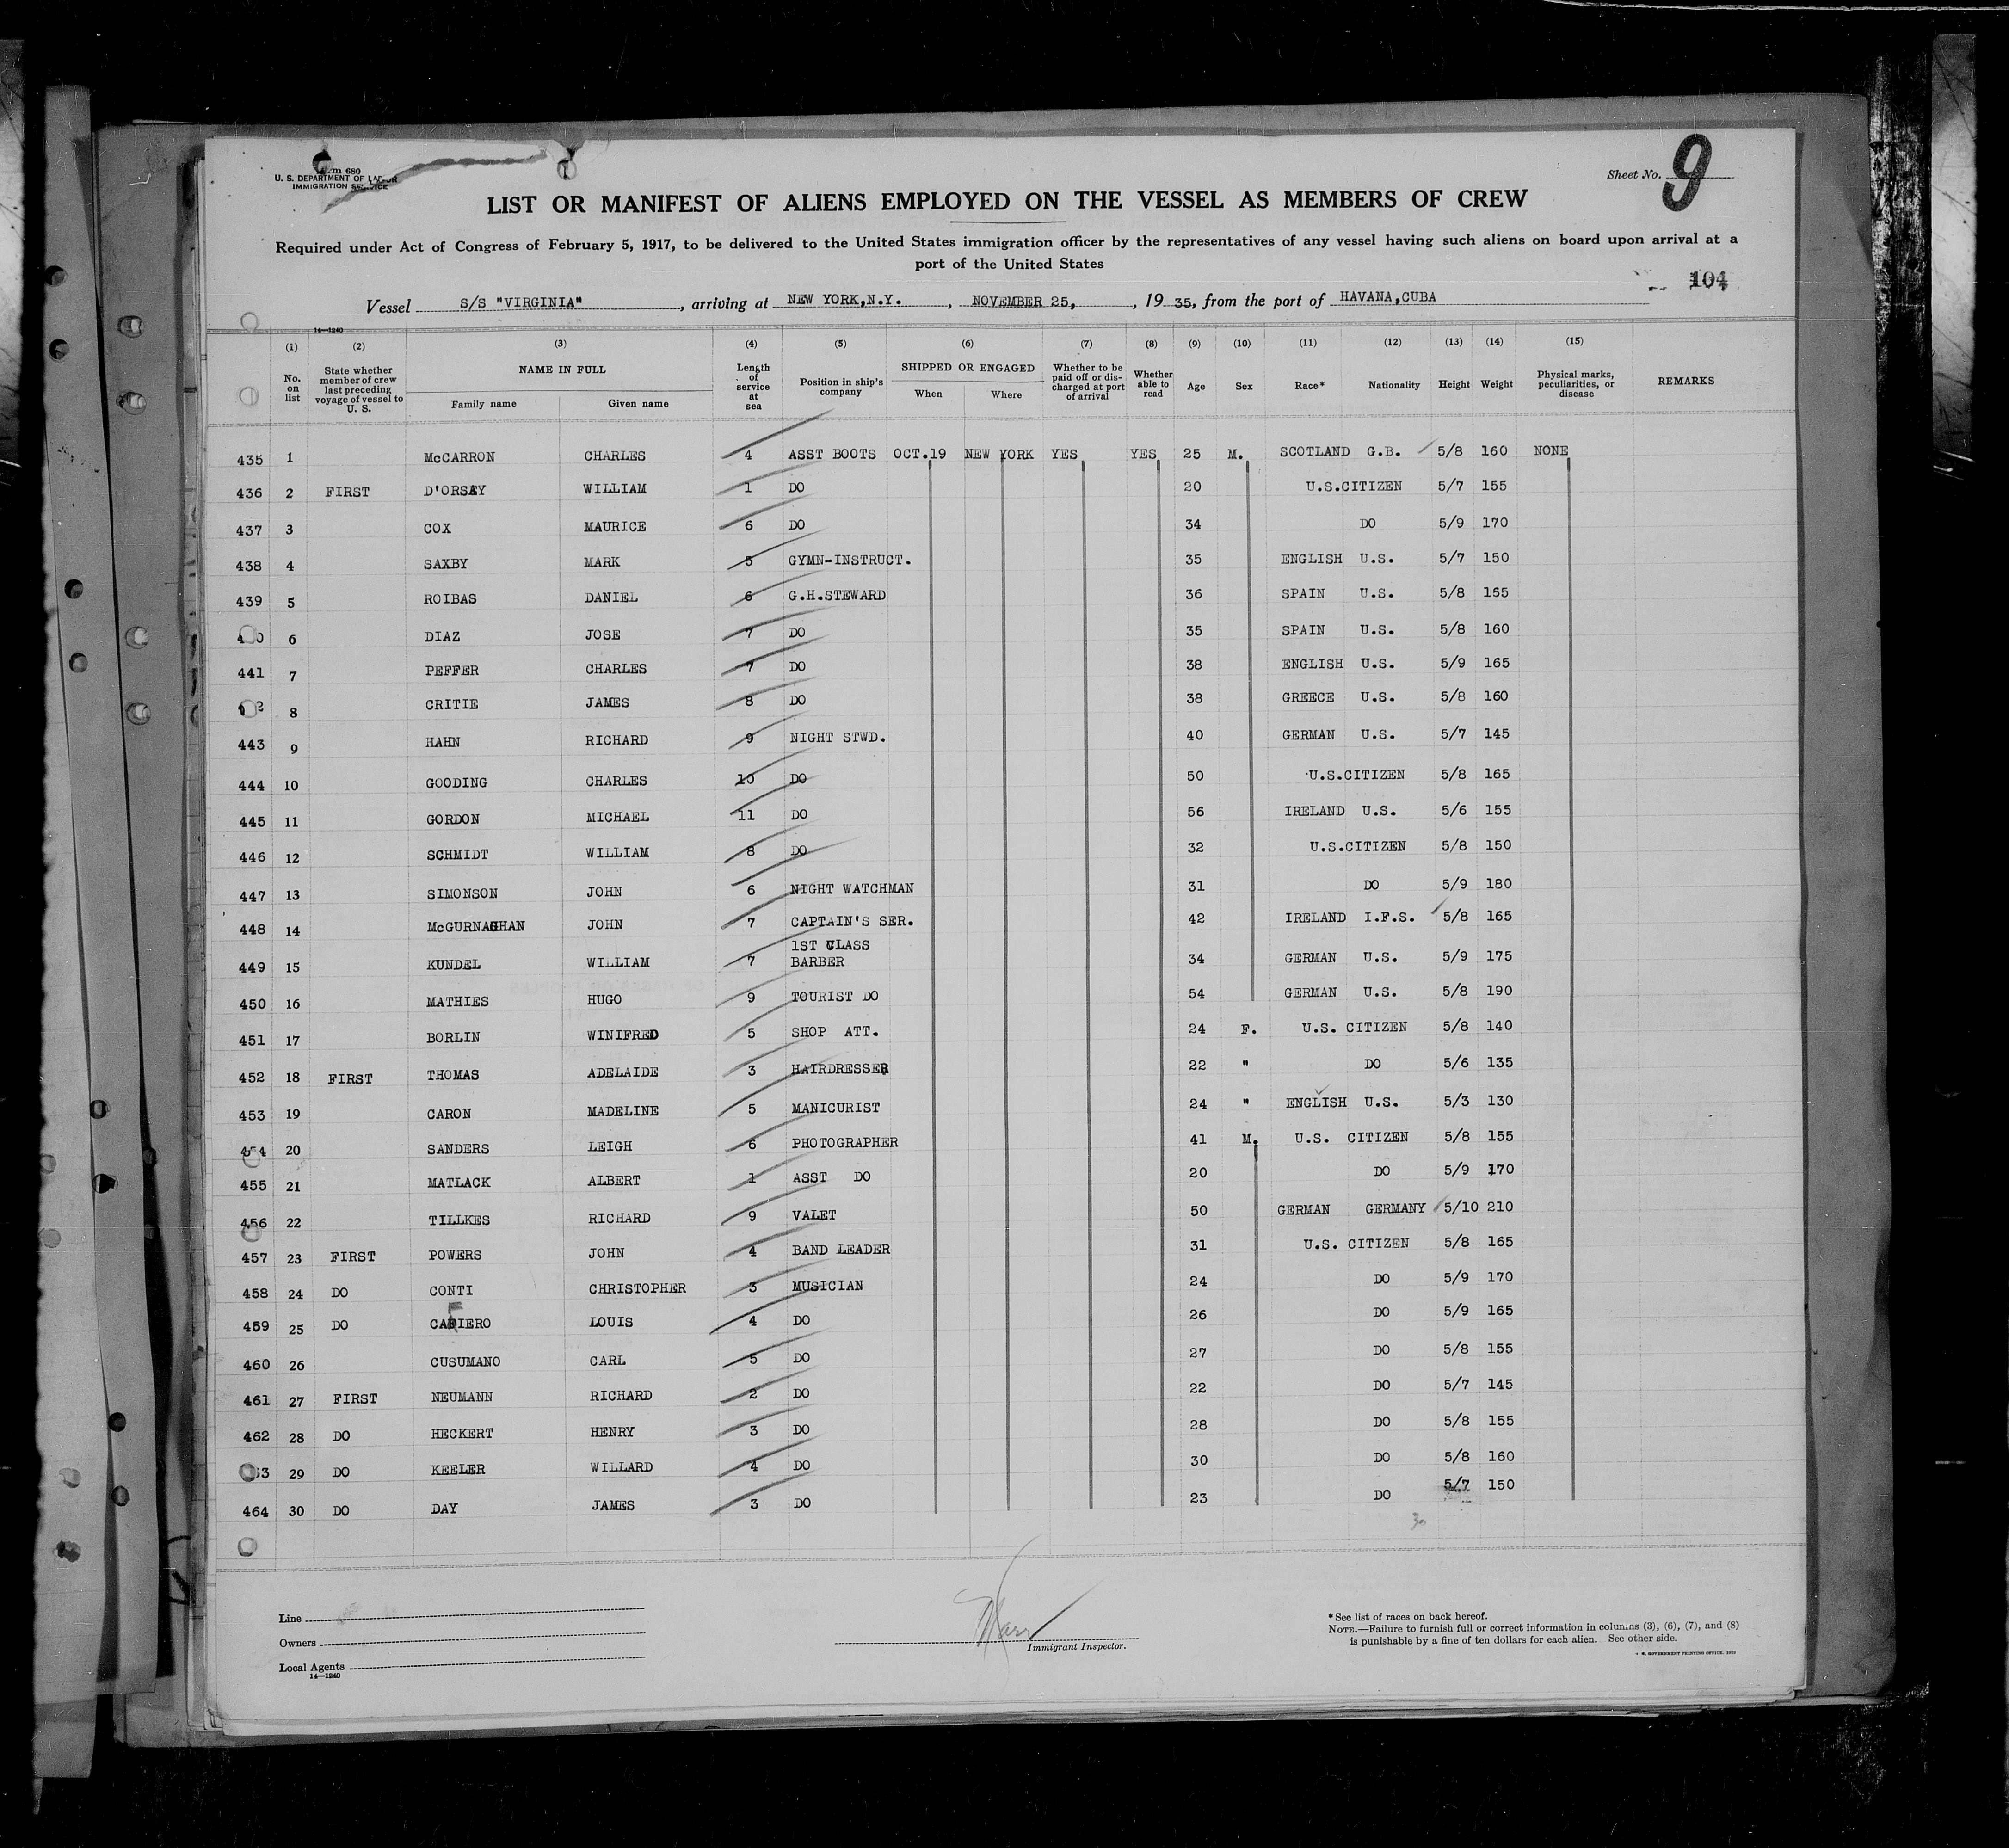 Form 680
U. S. DEPARTMENT OF LABOR
IMMIGRATION SERVICE
Sheet No. 9
LIST OR MANIFEST OF ALIENS EMPLOYED ON THE VESSEL AS MEMBERS OF CREW
Required under Act of Congress of February 5, 1917, to be delivered to the United States immigration officer by the representatives of any vessel having such aliens on board upon arrival at a
port of the United States
104
Vessel S/S "VIRGINIA", arriving at NEW YORK,N.Y., NOVEMBER 25, , 19 35, from the port of HAVANA,CUBA
14—1240
(1) (2) (3) (4) (5) (6) (7) (8) (9) (10) (11) (12) (13) (14) (15)
No. on list
State whether member of crew last preceding voyage of vessel to U. S.
NAME IN FULL
Family name Given name
Length of service at sea
Position in ship's company
SHIPPED OR ENGAGED
When Where
Whether to be paid off or discharged at port of arrival
Whether able to read
Age Sex Race* Nationality Height Weight
Physical marks, peculiarities, or disease
REMARKS
435 1 McCARRON CHARLES 4 ASST BOOTS OCT.19 NEW YORK YES YES 25 M. SCOTLAND G.B. 5/8 160 NONE
436 2 FIRST D'ORSAY WILLIAM 1 DO 20 U.S.CITIZEN 5/7 155
437 3 COX MAURICE 6 DO 34 DO 5/9 170
438 4 SAXBY MARK 5 GYMN-INSTRUCT. 35 ENGLISH U.S. 5/7 150
439 5 ROIBAS DANIEL 6 G.H.STEWARD 36 SPAIN U.S. 5/8 165
6 DIAZ JOSE 7 DO 35 SPAIN U.S. 5/8 160
441 7 PEFFER CHARLES 7 DO 38 ENGLISH U.S. 5/9 165
8 CRITIE JAMES 8 DO 38 GREECE U.S. 5/8 160
443 9 HAHN RICHARD 9 NIGHT STWD. 40 GERMAN U.S. 5/7 145
444 10 GOODING CHARLES 10 DO 50 U.S.CITIZEN 5/8 165
445 11 GORDON MICHAEL 11 DO 56 IRELAND U.S. 5/6 155
446 12 SCHMIDT WILLIAM 8 DO 32 U.S.CITIZEN 5/8 150
447 13 SIMONSON JOHN 6 NIGHT WATCHMAN 31 DO 5/9 180
448 14 JOHN 7 CAPTAIN'S SER. 42 IRELAND I.F.S. 5/8 165
449 15 KUNDEL WILLIAM 7 1ST CLASS BARBER 34 GERMAN U.S. 5/9 175
450 16 MATHIES HUGO 9 TOURIST DO 54 GERMAN U.S. 5/8 190
451 17 BORLIN WINIFRED 5 SHOP ATT. 24 F. U.S. CITIZEN 5/8 140
452 18 FIRST THOMAS ADELAIDE 3 HAIRDRESSER 22 " DO 5/6 135
453 19 CARON MADELINE 5 MANICURIST 24 " ENGLISH U.S. 5/3 130
454 20 SANDERS LEIGH 6 PHOTOGRAPHER 41 M. U.S. CITIZEN 5/8 155
455 21 MATLACK ALBERT 1 ASST DO 20 DO 5/9 170
456 22 TILLKES RICHARD 9 VALET 50 GERMAN GERMANY 5/10 210
457 23 FIRST POWERS JOHN 4 BAND LEADER 31 U.S. CITIZEN 5/8 165
458 24 DO CONTI CHRISTOPHER 3 MUSICIAN 24 DO 5/9 170
459 25 DO LOUIS 4 DO 26 DO 5/9 165
460 26 CUSUMANO CARL 5 DO 27 DO 5/8 155
461 27 FIRST NEUMANN RICHARD 2 DO 22 DO 5/7 145
462 28 DO HECKERT HENRY 3 DO 28 DO 5/8 155
29 DO KEELER WILLARD 4 DO 30 DO 5/8 160
464 30 DO DAY JAMES 3 DO 23 DO 5/7 150
30
Line
Owners
Local Agents
14—1240
Immigrant Inspector.
* See list of races on back hereof.
NOTE.—Failure to furnish full or correct information in columns (3), (6), (7), and (8)
is punishable by a fine of ten dollars for each alien. See other side.